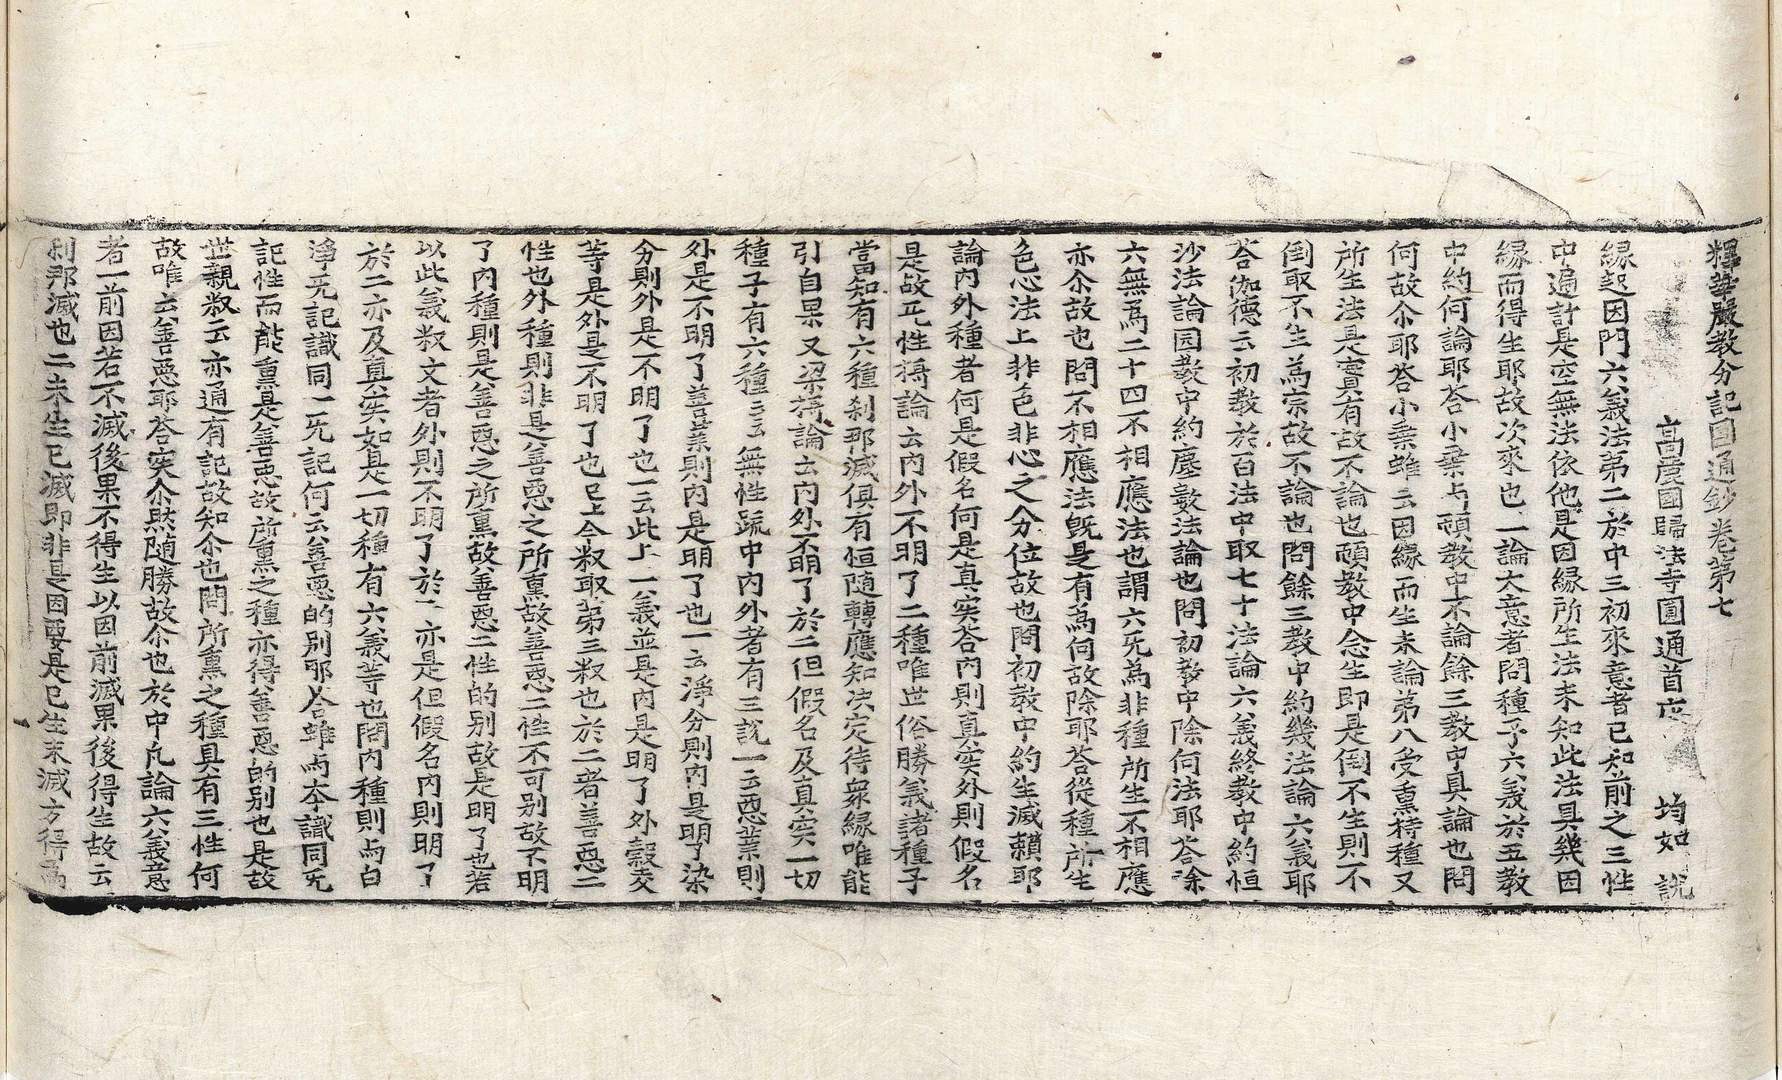 釋華嚴教分記圓通鈔卷第七
高麗國歸法寺圓通首座　均如　說
緣起因門六義法第二於中三初來意者已知前之三性
中遍計是空無法依他是因緣所生法未知此法具幾因
緣而得生耶故次來也一論大意者問種子六義於五教
中約何論耶荅小乘与頓教中不論餘三教中具論也問
何故尒耶荅小乘雖云因緣而生未論第八受熏持種又
所生法是實有故不論也頓教中念生即是倒不生則不
倒取不生爲宗故不論也問餘三教中約幾法論六義耶
荅伽德云初教於百法中取七十法論六義終教中約恒
沙法論圎教中約塵數法論也問初教中除何法耶荅除
六無爲二十四不相應法也謂六旡爲非種所生不相應
亦尒故也問不相應法旣是有爲何故除耶荅從種所生
色心法上非色非心之分位故也問初教中約生滅賴耶
論內外種者何是假名何是真实荅內則真实外則假名
是故旡性攝論云內外不明了二種唯世俗勝義諸種子
當知有六種刹那滅俱有恒随轉應知決定待衆緣唯能
引自果又梁攝論云內外不明了於二但假名及真实一切
種子有六種云云無性䟽中內外者有三說一云惡業則
外是不明了善業則內是明了也一云淨分則內是明了染
分則外是不明了也一云此上一義並是內是明了外穀麦
等是外是不明了也已上今叙取第三叙也於二者善惡二
性也外種則非是善惡之所熏故善惡二性不可别故不明
了內種則是善惡之所熏故善惡二性的别故是明了也若
以此義叙文者外則不明了於二亦是但假名內則明了
於二亦及真实如是一切種有六義等也問內種則与白
淨旡記識同一旡記何云善惡的别耶荅雖与本識同旡
記性而能熏是善惡故所熏之種亦得善惡的别也是故
世親叙云亦通有記故知尒也問所熏之種具有三性何
故唯云善惡耶荅実尒然随勝故尒也於中凡論六義意
者一前因若不滅後果不得生以因前滅果後得生故云
刹那滅也二未生已滅即非是因要是已生未滅方得爲